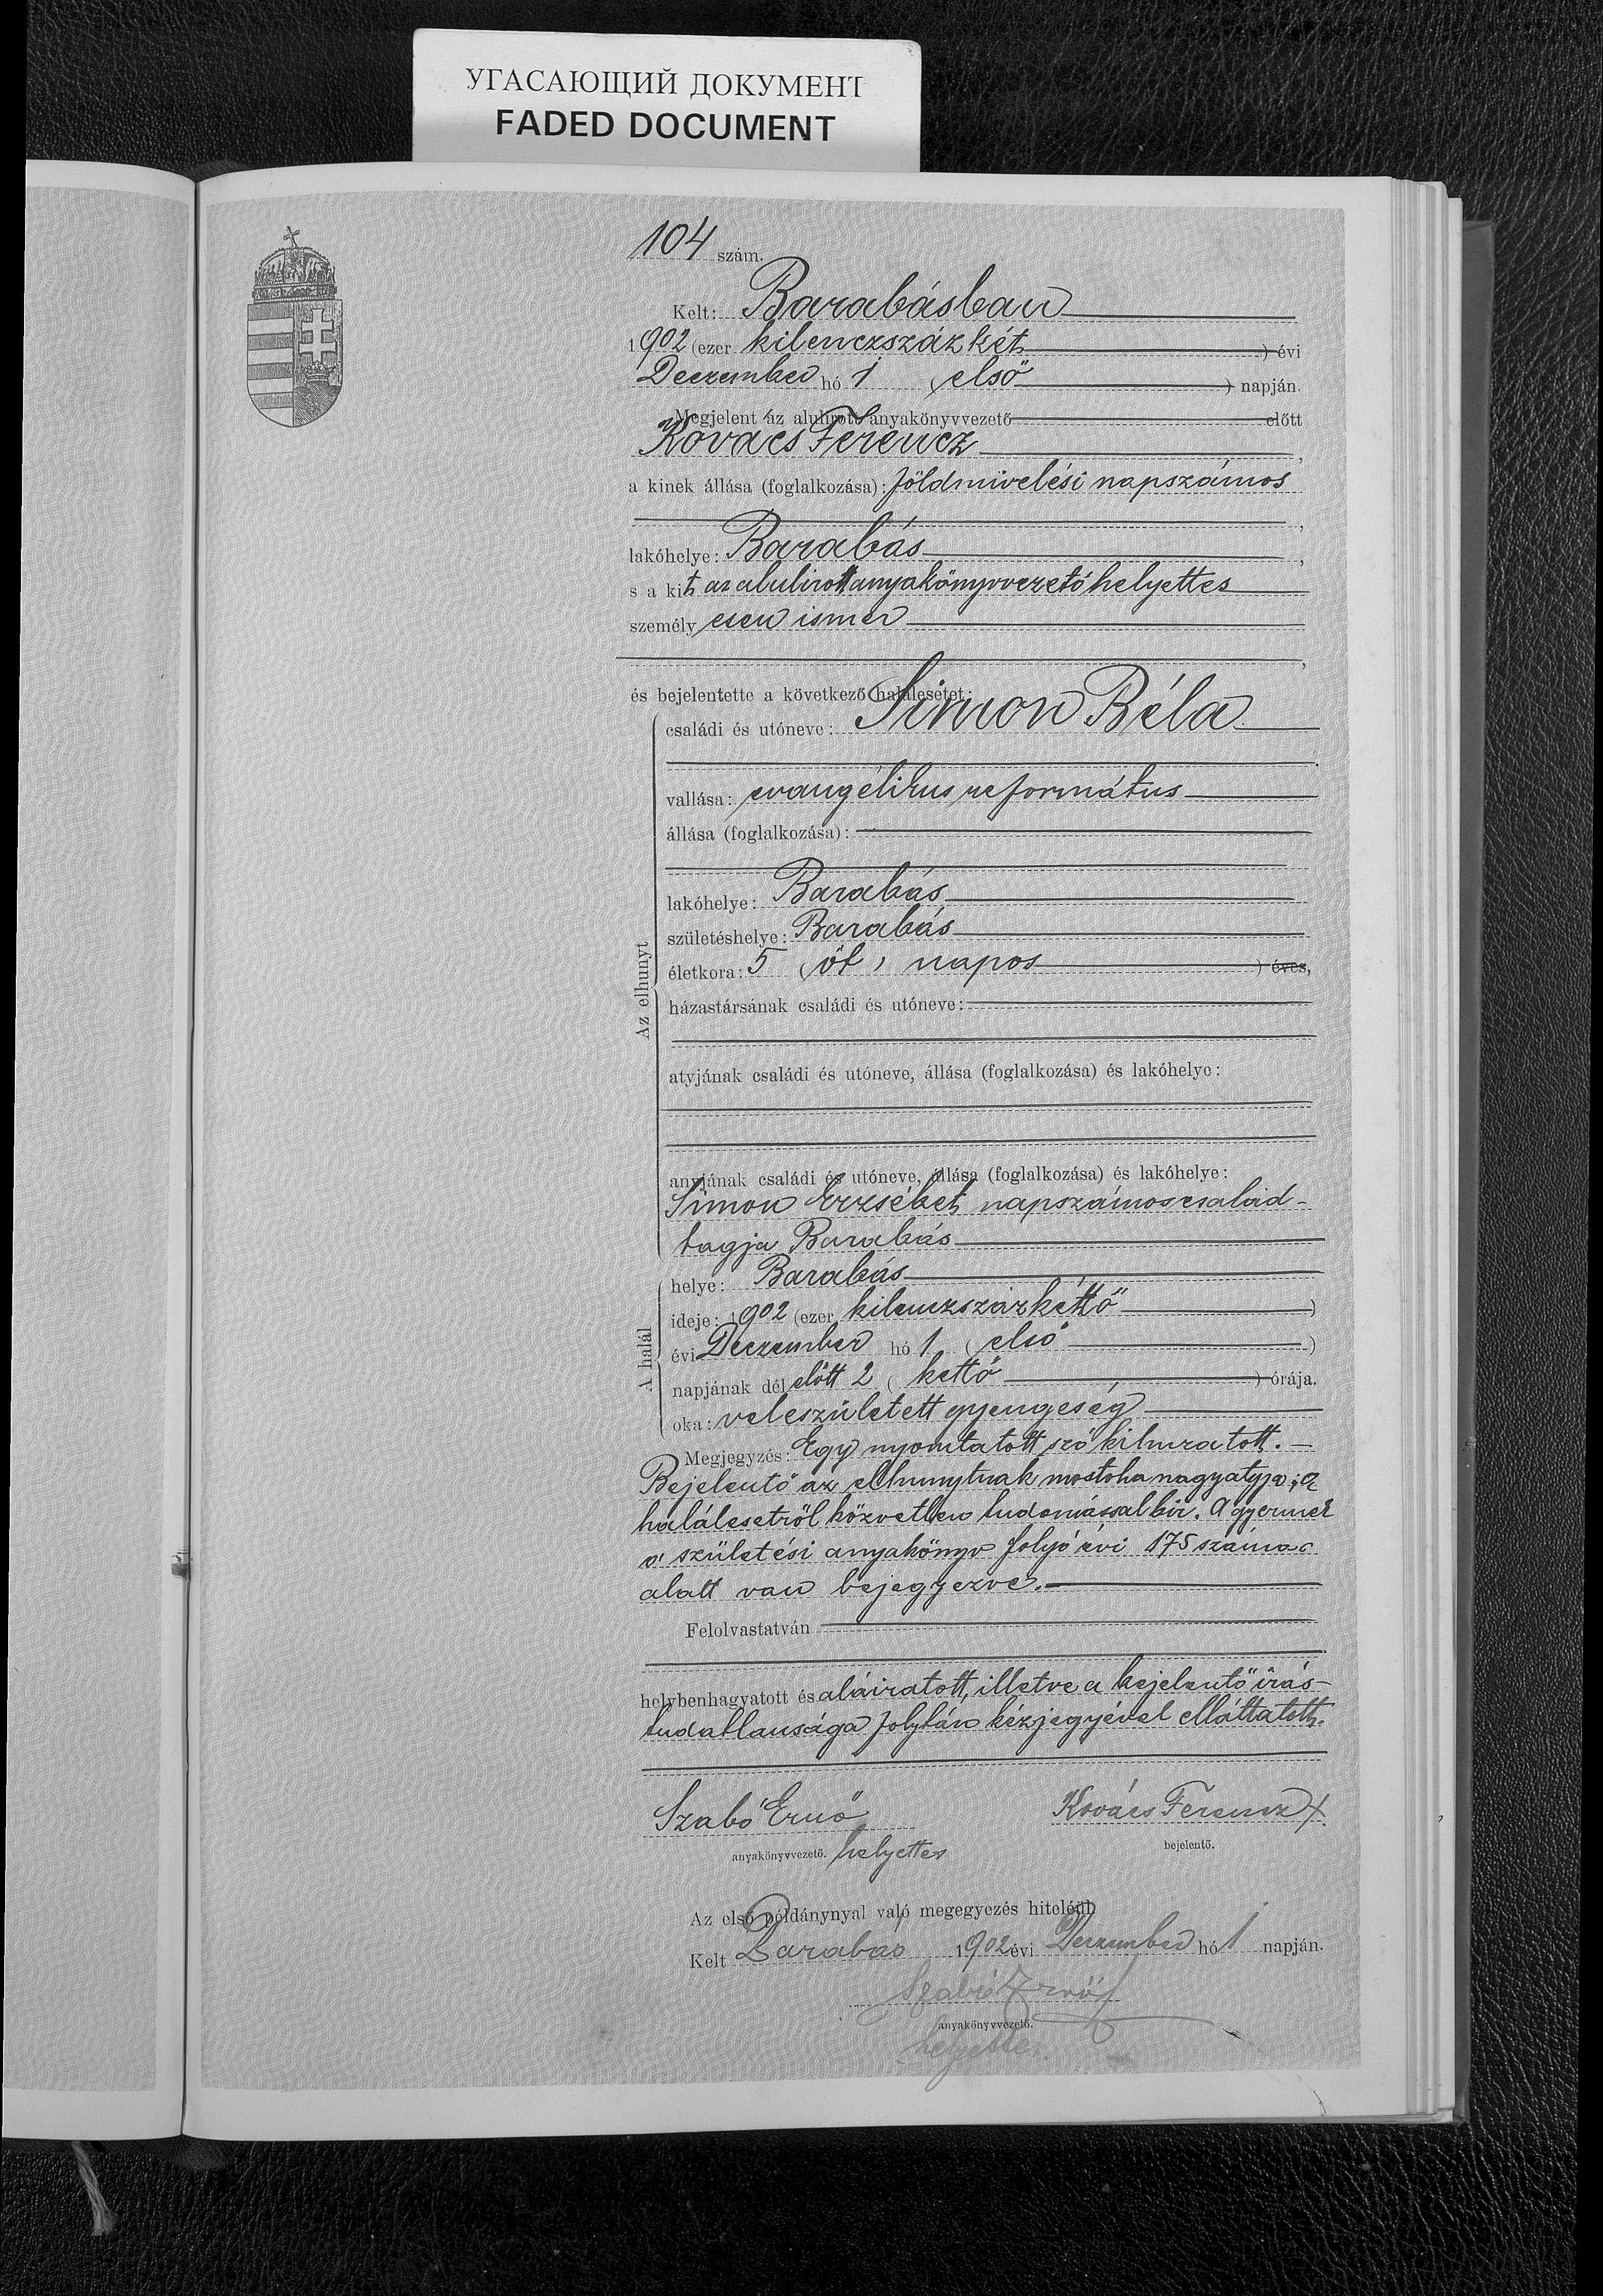 УГАСАЮЩИЙ ДОКУМЕНТ
FADED DOCUMENT
104 szám.
Kelt: Barabásban
1902 (ezer kilenczszáz két ) évi
Deczember hó 1 (első ) napján.
Megjelent az alulirott anyakönyvvezető előtt
Kovács Ferencz ,
a kinek állása (foglalkozása): földmivelési napszámos
,
lakóhelye: Barabás ,
s a kit az alulirott anyakönyvvezető helyettes
személy esen ismer
,
és bejelentette a következő halálesetet:
családi és utóneve: Simon Béla
vallása: evangélikus református
állása (foglalkozása):
lakóhelye: Barabás
születéshelye: Barabás
életkora: 5 (öt) napos ) éves,
házastársának családi és utóneve:
atyjának családi és utóneve, állása (foglalkozása) és lakóhelye:
anyjának családi és utóneve, állása (foglalkozása) és lakóhelye:
Simon Erzsébet napszámos család-
tagja Barabás
Az elhunyt
helye: Barabás
ideje: 1902 (ezer kilenczszázkettő )
évi Deczember hó 1 (első )
napjának dél előtt 2 (kettő ) órája.
oka: veleszületett gyengeség
A halál
Megjegyzés: Egy nyomtatott szó kihuzatott. –
Bejelentő az elhunytnak mostoha nagyatyja; a
halálesetről közvetlen tudomással bir. A gyermek
a születési anyakönyv folyó évi 175 száma
alatt van bejegyezve.
Felolvastatván
helybenhagyatott és aláiratott, illetve a bejelentő irás-
tudatlansága folytán kézjegyével elláttatott.
Szabó Ernő Kovács Ferencz x
anyakönyvvezető. helyettes bejelentő.
Az első példánynyal való megegyezés hiteléül:
Kelt Barabás 1902 évi Deczember hó 1 napján.
Szabó Ernő
anyakönyvvezető.
helyettes